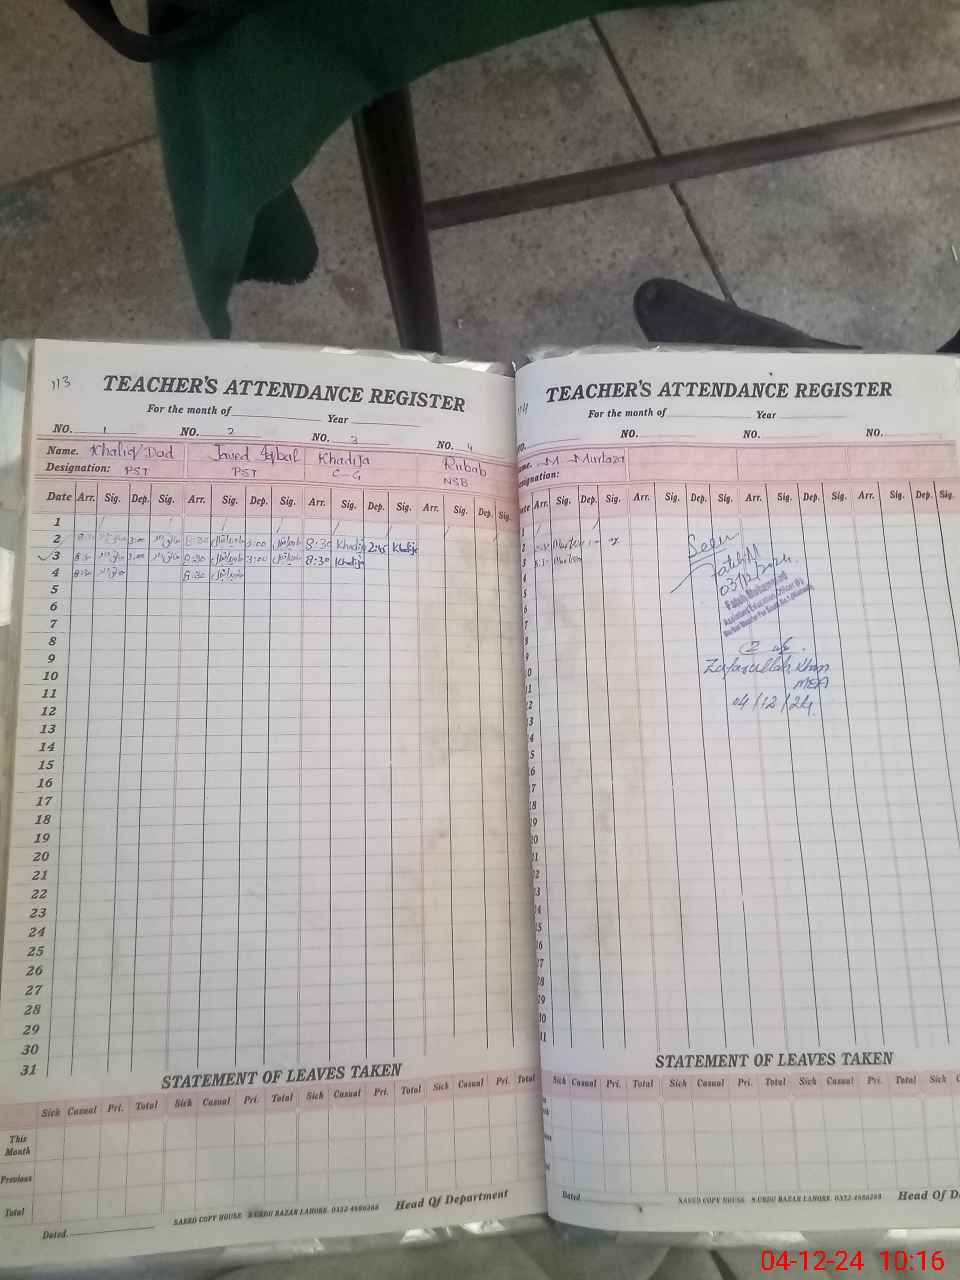 113
TEACHER'S ATTENDANCE REGISTER
For the month of Year
NO. 1 NO. 2 NO. 3 NO. 4
Name. Khaliq Dad Javed Iqbal Khadija Rubab
Designation: PST PST C-G NSB
Date Arr. Sig. Dep. Sig. Arr. Sig. Dep. Sig. Arr. Sig. Dep. Sig. Arr. Sig. Dep. Sig.
1
2 8:30 3:00 8:30 جاویداقبال 3:00 جاویداقبال 8:30 Khadija 2:45 Khadija
3 8:30 3:00 8:30 جاویداقبال 3:00 جاویداقبال 8:30 Khadija
4 8:30 8:30 جاویداقبال
5
6
7
8
9
10
11
12
13
14
15
16
17
18
19
20
21
22
23
24
25
26
27
28
29
30
31
STATEMENT OF LEAVES TAKEN
Sick Casual Pri. Total Sick Casual Pri. Total Sick Casual Pri. Total Sick Casual Pri. Total
This Month
Previous
Total
Dated. SAEED COPY HOUSE 8 URDU BAZAR LAHORE. 0322-4686268 Head Of Department
TEACHER'S ATTENDANCE REGISTER
For the month of Year
NO. NO. NO. NO.
M Murtaza
Arr. Sig. Dep. Sig. Arr. Sig. Dep. Sig. Arr. Sig. Dep. Sig. Arr. Sig. Dep. Sig.
Seen
03/12/2024
Zafarullah Khan
MEA
04/12/24
STATEMENT OF LEAVES TAKEN
Sick Casual Pri. Total Sick Casual Pri. Total Sick Casual Pri. Total Sick
Dated. SAEED COPY HOUSE 8 URDU BAZAR LAHORE. 0322-4686268 Head Of D
04-12-24 10:16